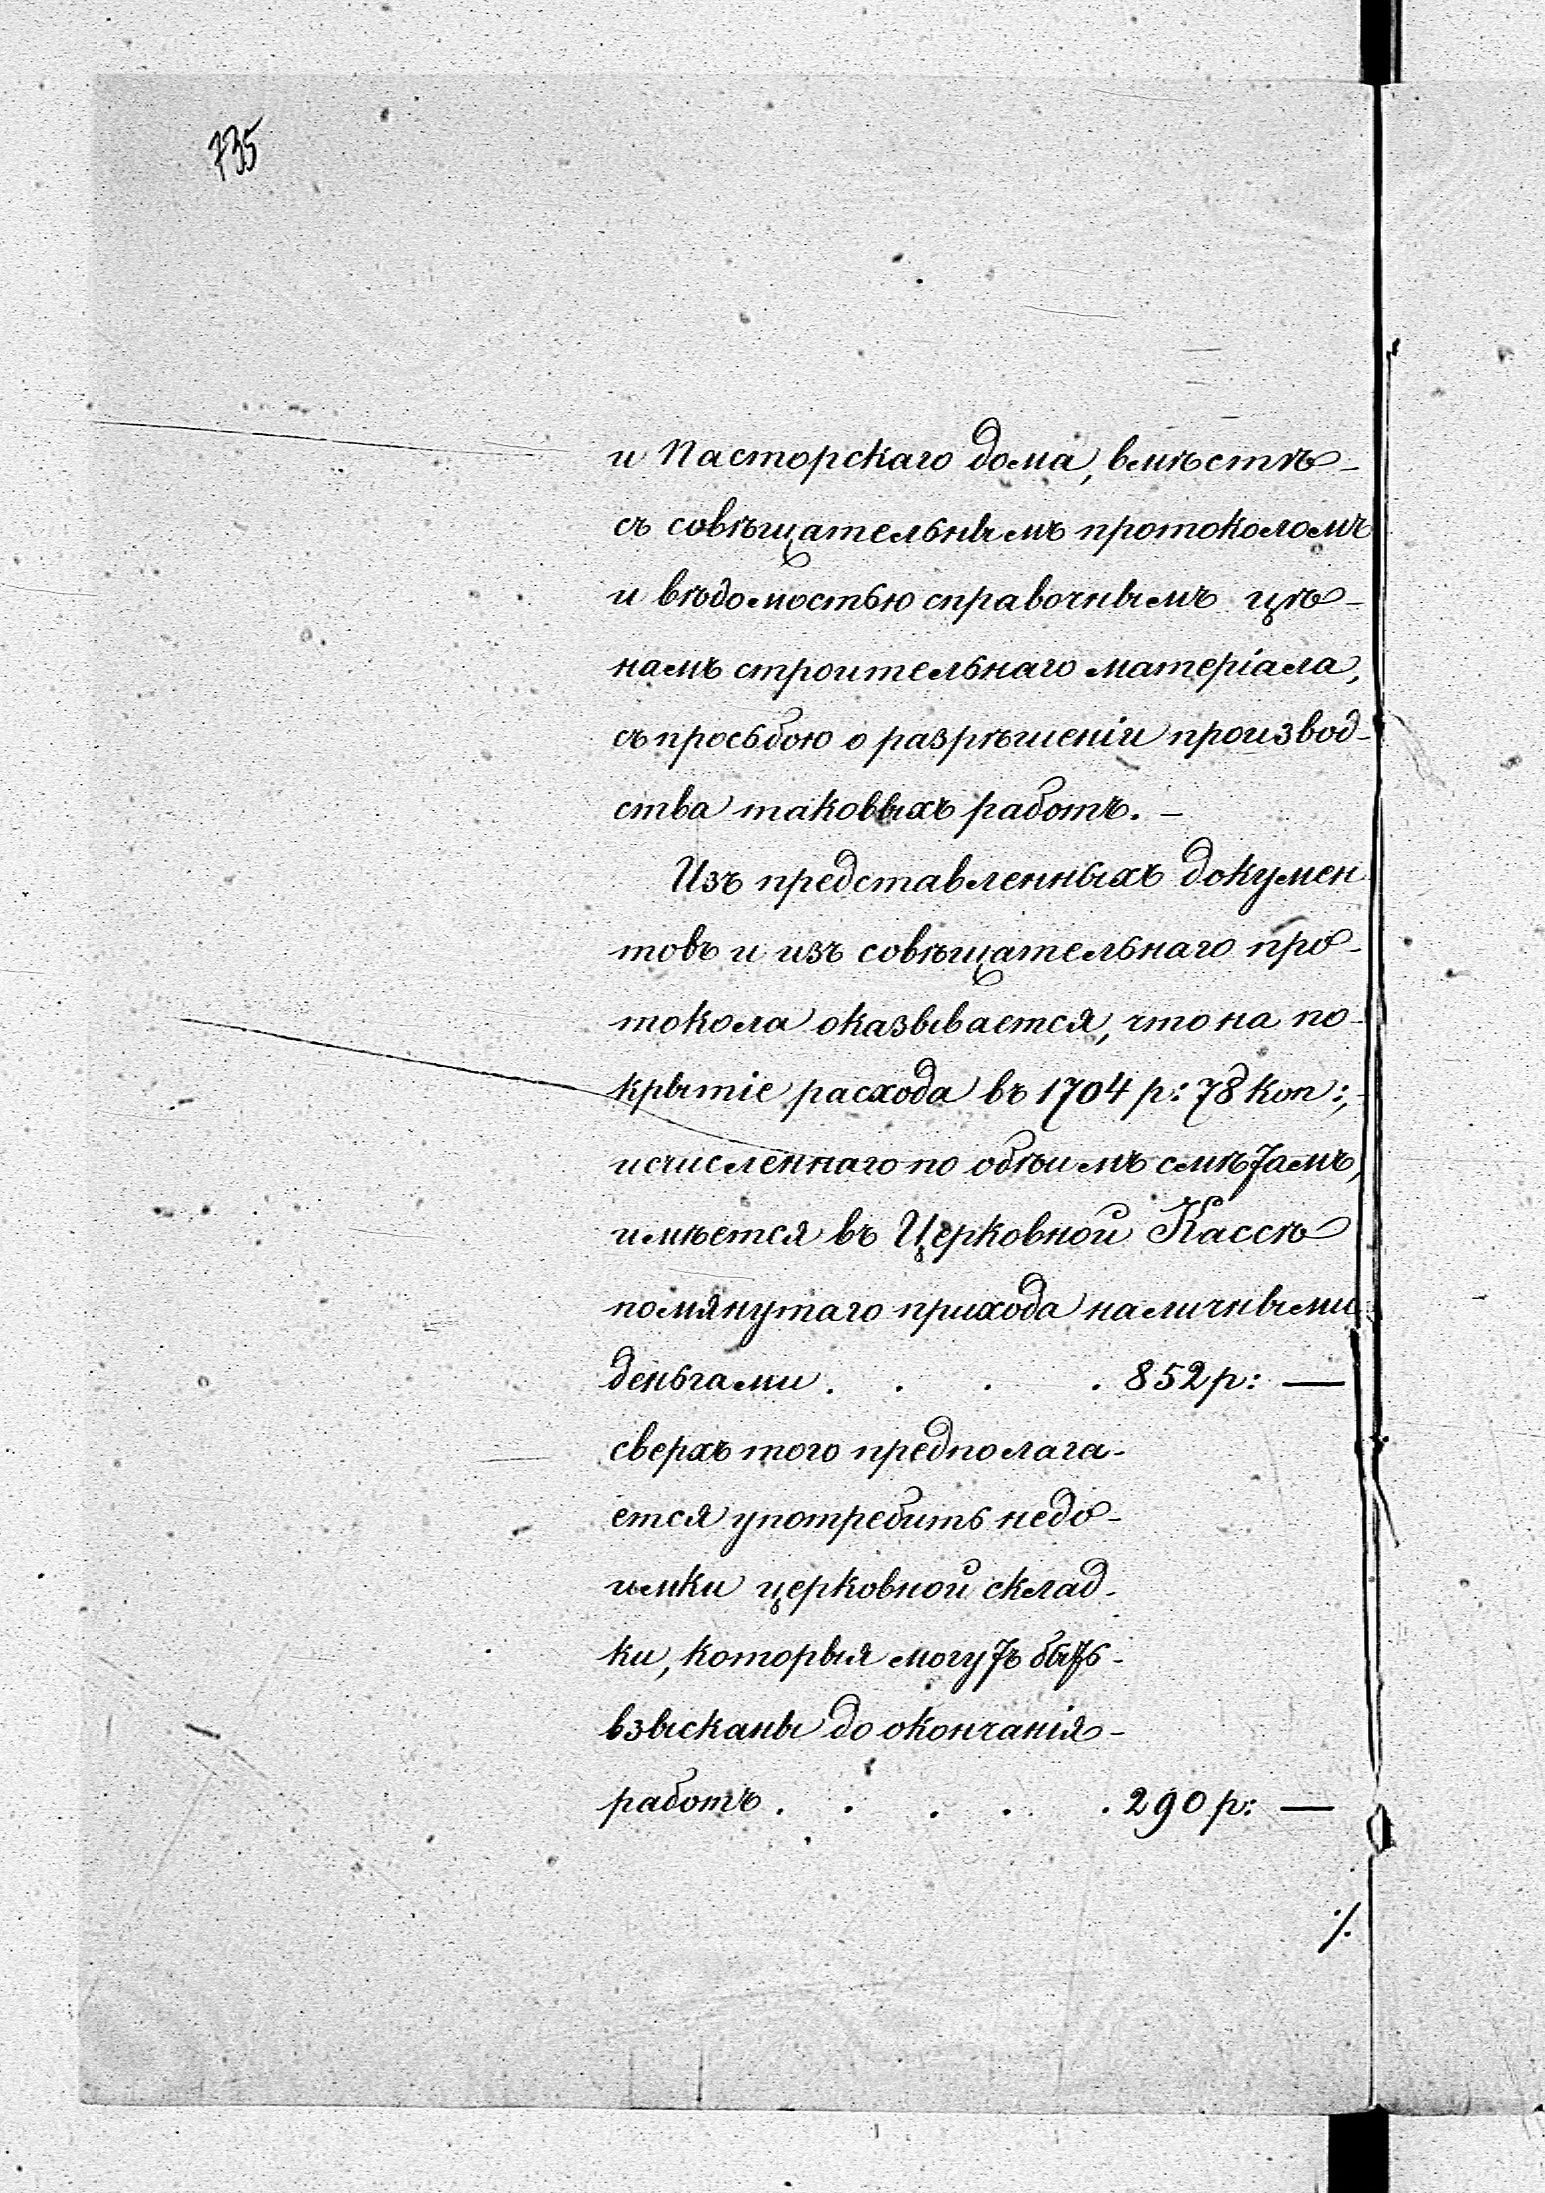 735
и Пасторскаго дома, вмѣстѣ-
съ совѣщательнымъ протоколомъ
и вѣдомостью справочнымъ цѣ-
намъ строительнаго матеріала,
съ просьбою о разрѣшеніи производ-
ства таковыхъ работъ. –
Изъ представленныхъ докумен
товъ и изъ совѣщательнаго про-
токола оказывается, что на по-
крытіе расхода въ 1704 р: 78 коп:,-
исчисленнаго по обѣимъ смѣтамъ,
имѣется въ Церковной Кассѣ
помянутаго прихода наличными
деньгами . . . . 852 р: —
сверхъ того предполага-
ется употребить недо-
имки церковной склад-
ки, которыя могутъ быть-
взысканы до окончанія-
работъ . . . . . 290 р: —
·/.